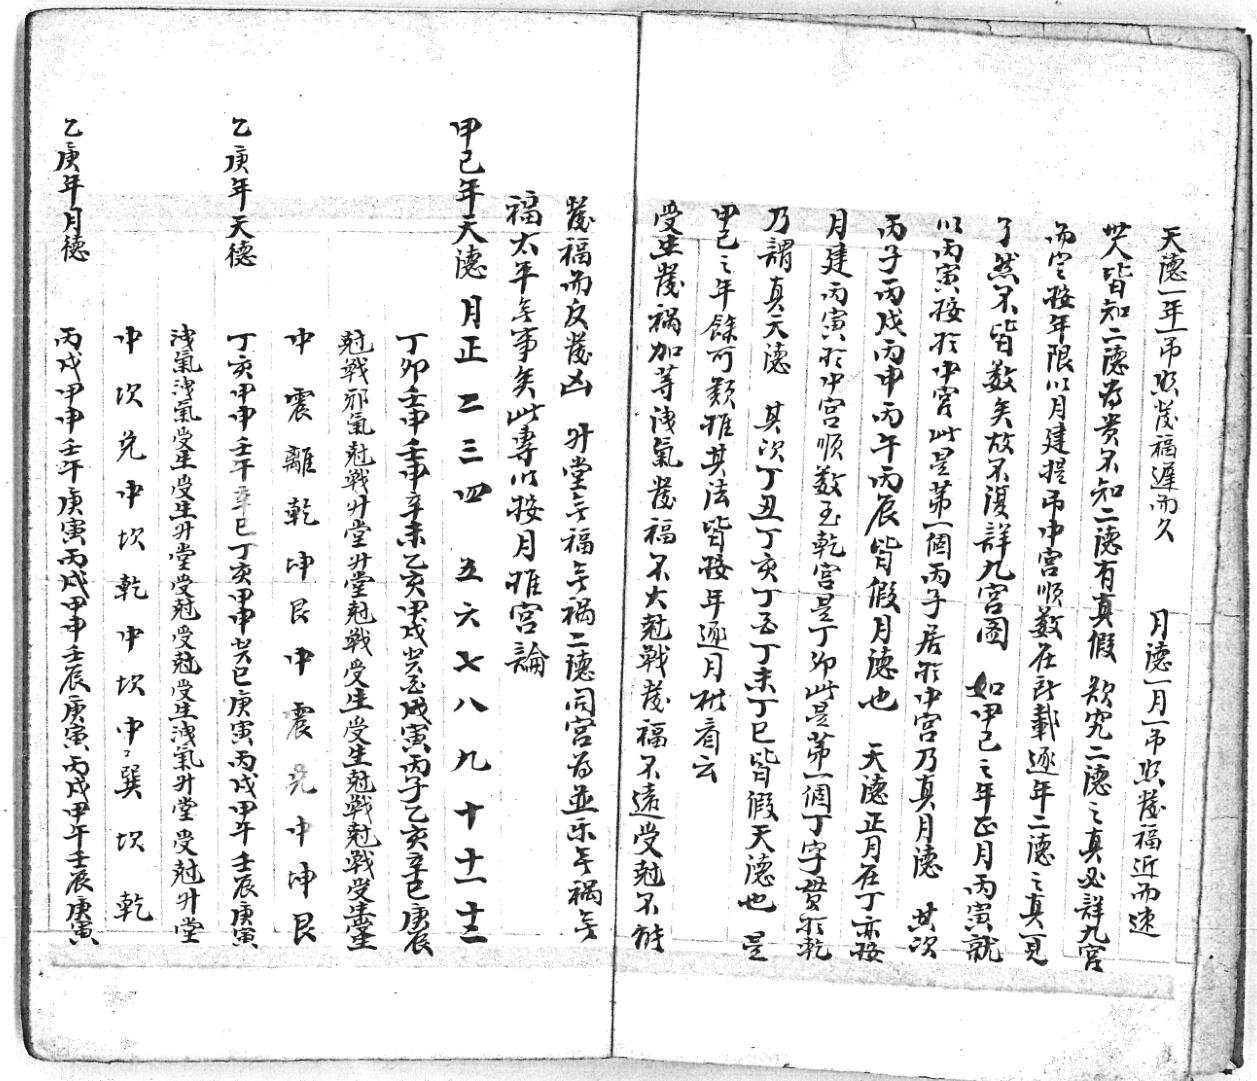 天德一年一吊照發福遲而久　月德一月一吊照發福近而速
世人皆知二德為貴不知二德有真假欲究二德之真必詳九宮
而定按年限以月建提吊中宮順数在所載逐年二德之真一見
了然不皆数矣故不復詳九宮圖　如甲己之年正月丙寅就
以丙寅按於中宮此是第一個丙子居於中宮乃真月德　其次
丙子丙戌丙申丙午丙辰皆假月德也　天德正月在丁亦按
月建丙寅於中宮順数至乾宮是丁卯此是第一個丁字貫於乾
乃謂真天德　其次丁丑丁亥丁酉丁未丁巳皆假天德也　是
甲己之年餘可類推其法皆按年逐月推看云
受生發禍加等洩氣發福不大尅戰發福不遠受尅不能
發福而反發凶　升堂無福無禍二德同宮為並乐無禍無
福太平無事矣此專以按月推宮論
甲己年天德月正二三四五六七八九十十一十二
丁卯壬申壬申辛未乙亥甲戌癸酉戊寅丙子乙亥辛巳庚辰
尅戰邪氣尅戰升堂升堂尅戰受生受生尅戰尅戰受生受生
中震離乾坤艮中震兑中坤艮
乙庚年天德　丁亥甲申壬午辛巳丁亥甲申癸巳庚寅丙戌甲午壬辰庚寅
洩氣洩氣受生受生升堂受尅受尅受生洩氣升堂受尅升堂
中坎兑中坎乾中坎中巽坎乾
乙庚年月德　丙戌甲申壬午庚寅丙戌甲申壬辰庚寅丙戌甲午壬辰庚寅